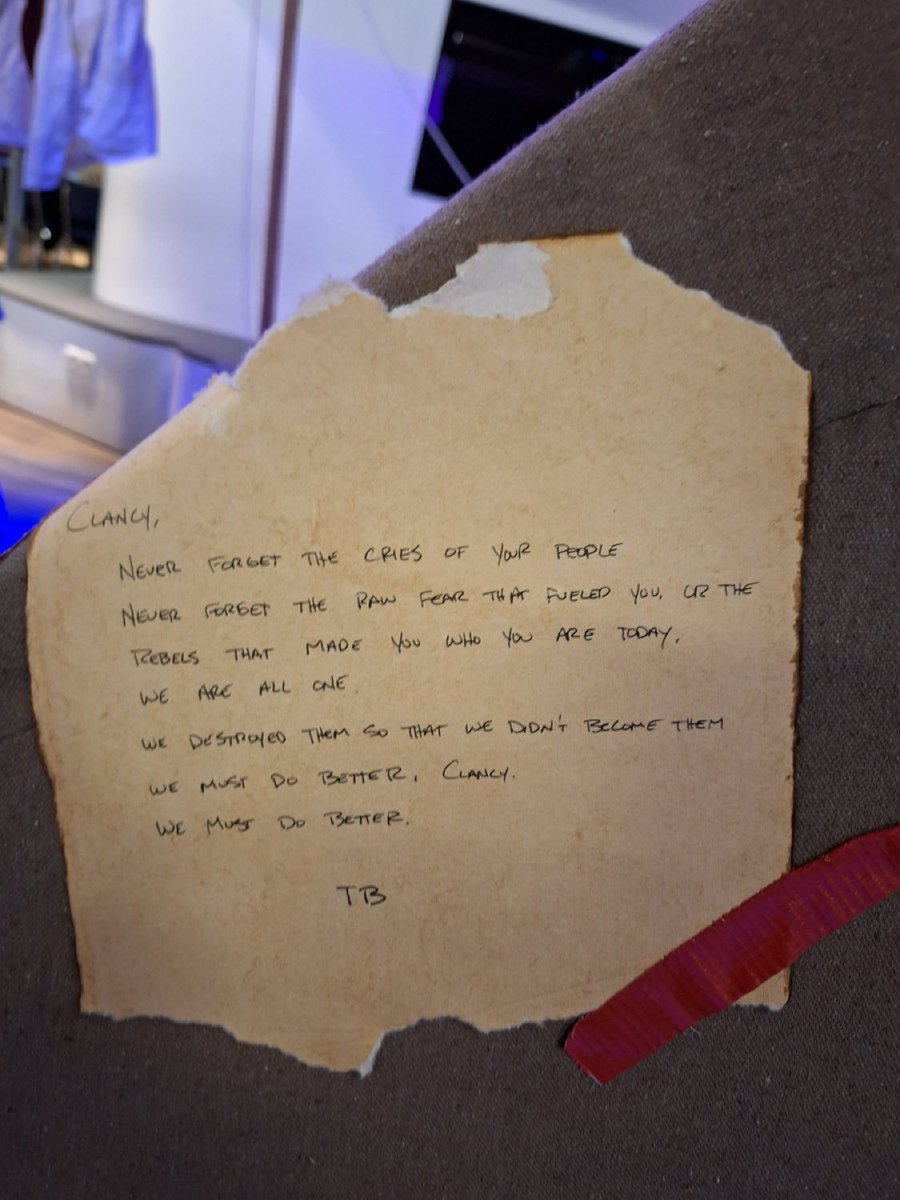 CLANCY,
NEVER FORGET THE CRIES OF YOUR PEOPLE
NEVER FORGET THE RAW FEAR THAT FUELED YOU, OR THE
REBELS THAT MADE YOU WHO YOU ARE TODAY.
WE ARE ALL ONE.
WE DESTROYED THEM SO THAT WE DIDN'T BECOME THEM
WE MUST DO BETTER, CLANCY.
WE MUST DO BETTER.
TB